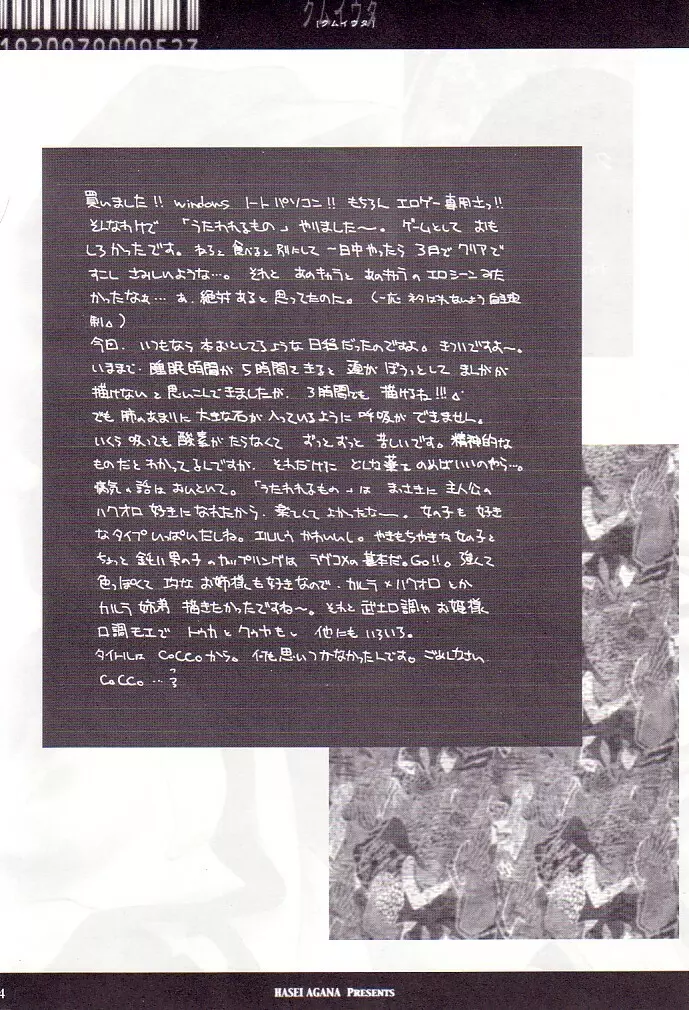 1920979009523
クムイウタ
[クムイウタ]
買いました!! windows ノートパソコン!! もちろん エロゲー専用さっ!!
そんなわけで 「うたわれるもの」 やりました〜。 ゲームとして おも
しろかったです。 ねると 食べると 別にして 一日中やったら 3日で クリアで
すこし さみしいような…。 それと あのキャラと あのキャラの エロシーンみた
かったなぁ… あ、絶対あると思ってたのに。 (一応 ネタばれないよう 自主規
制。)
今回、いつもなら 本おとしてるような 日程だったのですよ。 きついですよ〜。
いままで、睡眠時間が 5時間できると 頭が ぼうっとして まんがが
描けない と思いこんできましたが、 3時間でも 描けるね!!!
でも 肺のあまりに 大きな石が 入っているように 呼吸が できません。
いくら 吸っても 酸素が たらなくて ずっとずっと 苦しいです。 精神的な
ものだと わかってるんですが、 それだけに どんな薬を のめばいいのやら…。
病気の話は おいといて。 「うたわれるもの」は まっさきに 主人公の
ハクオロ 好きに なれたから、 楽しくて よかったな〜。 女の子も 好き
なタイプ いっぱいだしね。 エルルゥ かわいいし。 やきもちやきな 女の子と
ちょっと 鈍い 男の子 のカップリングは ラヴコメの 基本だ。Go!!。 強くて
色っぽくて なお姉様も好きなので、 カルラ×ハクオロ とか
カルラ 姉弟 描きたかったですね〜。 それと 武士口調や お姫様
口調モエで トウカと クーヤも。 他にも いろいろ。
タイトルは CoCCoから。 何も思いつかなかったんです。 ごめんなさい
CoCCo …
4
HASEI AGANA PRESENTS